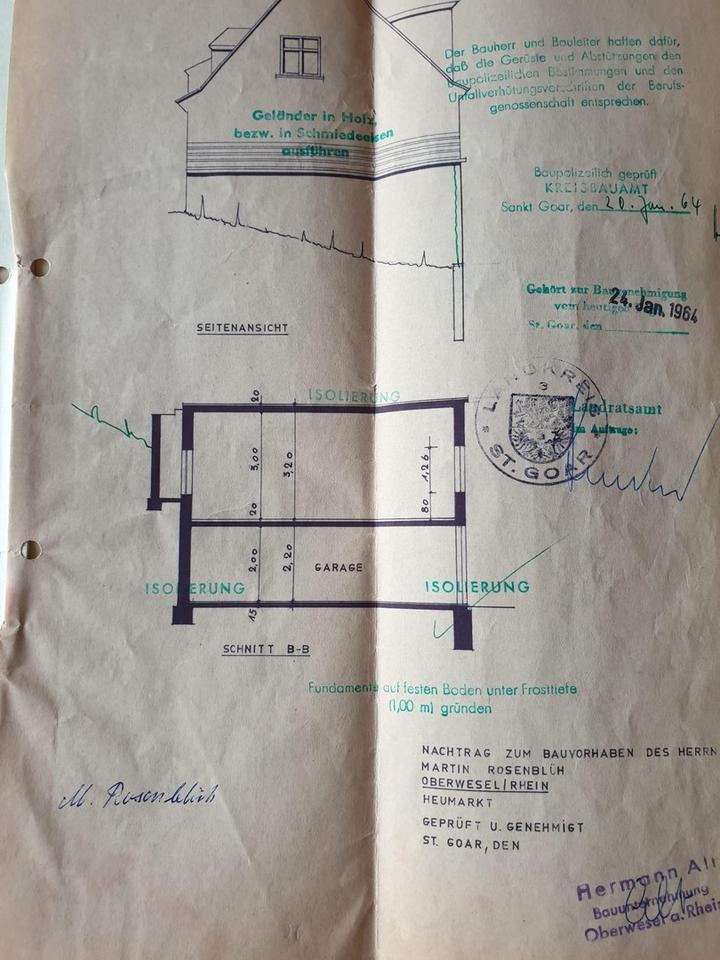 Der Bauherr und Bauleiter haften dafür,
daß die Gerüste und Abstützungen den
baupolizeilichen Bestimmungen und den
Unfallverhütungsvorschriften der Berufs-
genossenschaft entsprechen.
Geländer in Holz,
bezw. in Schmiedeeisen
ausführen
Baupolizeilich geprüft
KREISBAUAMT
Sankt Goar, den 20. Jan. 64
Gehört zur Baugenehmigung
vom heutigen
24. Jan. 1964
St. Goar, den
SEITENANSICHT
ISOLIERUNG
LANDKREIS
3
ST. GOAR
Landratsamt
Im Auftrage:
20
3,00
3,20
1,26
20
80
2,00
2,20
GARAGE
ISOLIERUNG
ISOLIERUNG
15
SCHNITT B-B
Fundamente auf festen Boden unter Frosttiefe
(1,00 m) gründen
NACHTRAG ZUM BAUVORHABEN DES HERRN
MARTIN ROSENBLÜH
OBERWESEL/RHEIN
HEUMARKT
GEPRÜFT U. GENEHMIGT
ST. GOAR, DEN
M. Rosenblüh
Hermann
Bauunternehmung
Oberwesel a. Rhein